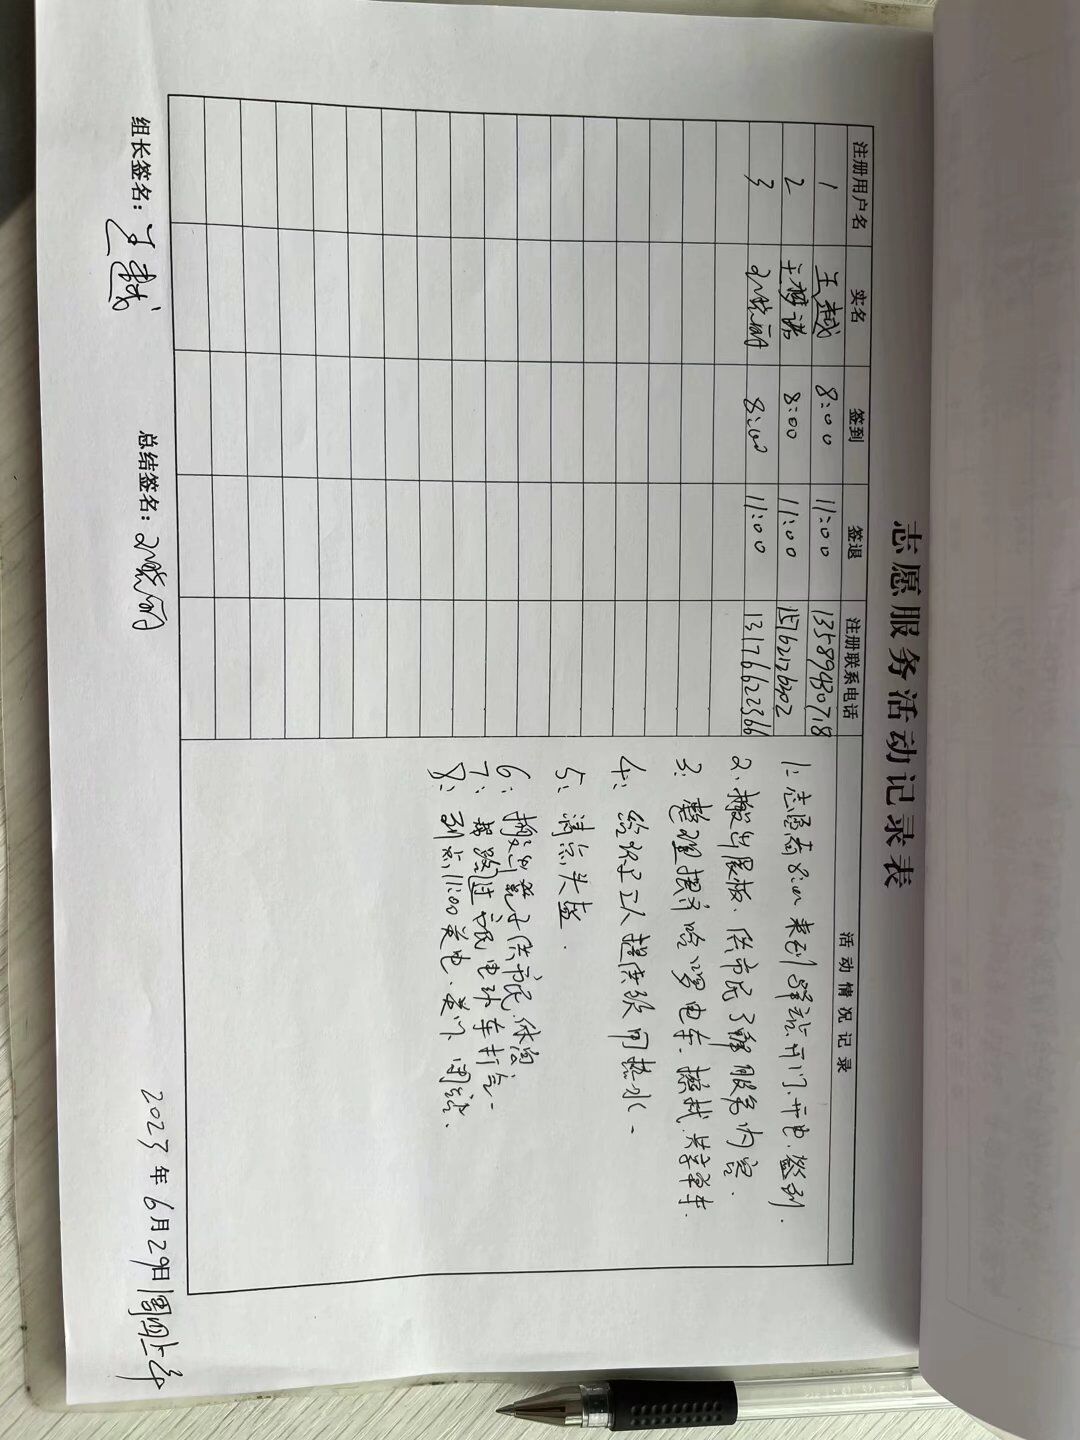 志愿服务活动记录表
注册用户名 实名 签到 签退 注册联系电话 活动情况记录
1 王越 8:00 11:00 13589430718
2 王梦诺 8:00 11:00 15762126302
3 8:00 11:00 13176622366
1:志愿者8:00来到驿站开门.开电.签到.
2.搬出展板.供市民了解服务内容.
3:整理摆齐哈罗电车.摆栽.共享单车.
4:给环卫工人提供饮用热水.
5:清点头盔.
6:搬出凳子供市民休息
7:帮路过市民电动车打气.
8:到点11:00关电.关门.闭站.
组长签名:王越 总结签名: 2023年6月29日周四上午